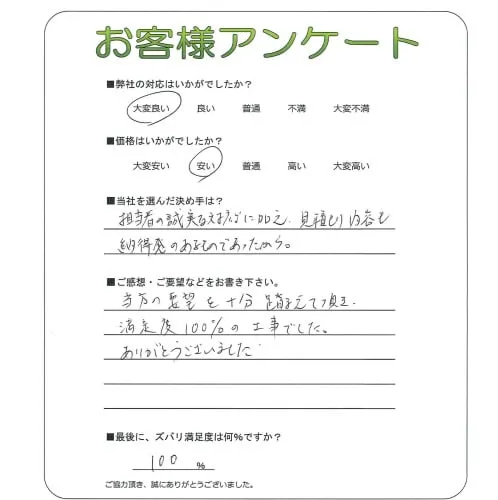 お客様アンケート
■弊社の対応はいかがでしたか？
大変良い 良い 普通 不満 大変不満
■価格はいかがでしたか？
大変安い 安い 普通 高い 大変高い
■当社を選んだ決め手は？
担当者の誠実な に加え、見積もり内容も
納得感のあるものであったから。
■ご感想・ご要望などをお書き下さい。
当方の要望を十分踏まえて頂き、
満足度100%の工事でした。
ありがとうございました
■最後に、ズバリ満足度は何%ですか？
100 %
ご協力頂き、誠にありがとうございました。